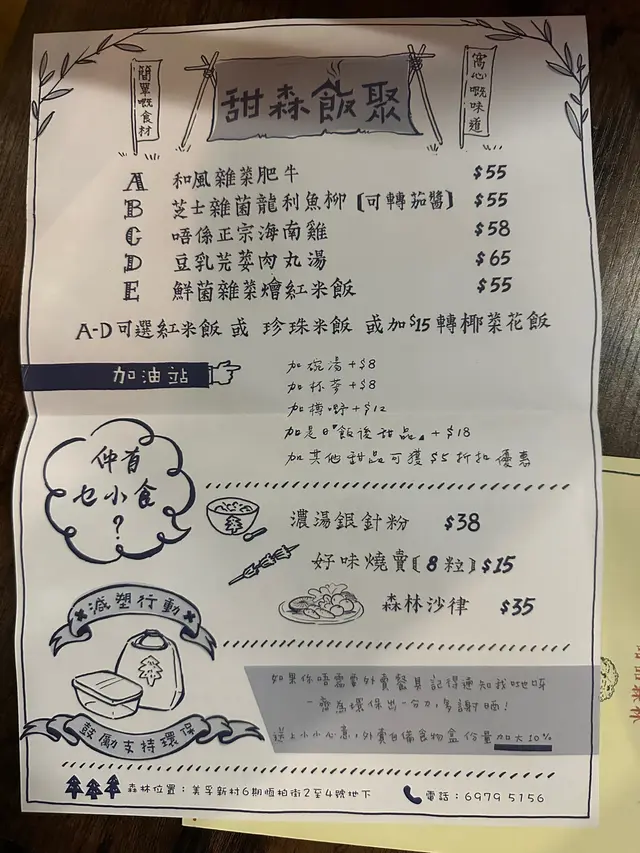 簡單嘅食材
甜森飯聚
窩心嘅味道
A 和風雜菜肥牛 $55
B 芝士雜菌龍利魚柳〔可轉茄醬〕 $55
C 唔係正宗海南雞 $58
D 豆乳芫荽肉丸湯 $65
E 鮮菌雜菜燴紅米飯 $55
A-D可選紅米飯 或 珍珠米飯 或加$15轉椰菜花飯
加油站
加碗湯+$8
加杯茶+$8
加樽嘢+$12
加是日『飯後甜品』+$18
加其他甜品可獲$5折扣優惠
仲有
乜小食
?
濃湯銀針粉 $38
好味燒賣〔8粒〕$15
森林沙律 $35
減塑行動
鼓勵支持環保
如果你唔需要外賣餐具記得通知我哋呀
一齊為環保出一分力,多謝晒!
送上小小心意,外賣自備食物盒份量加大10%
森林位置:美孚新村6期恆柏街2至4號地下
電話:6979 5156